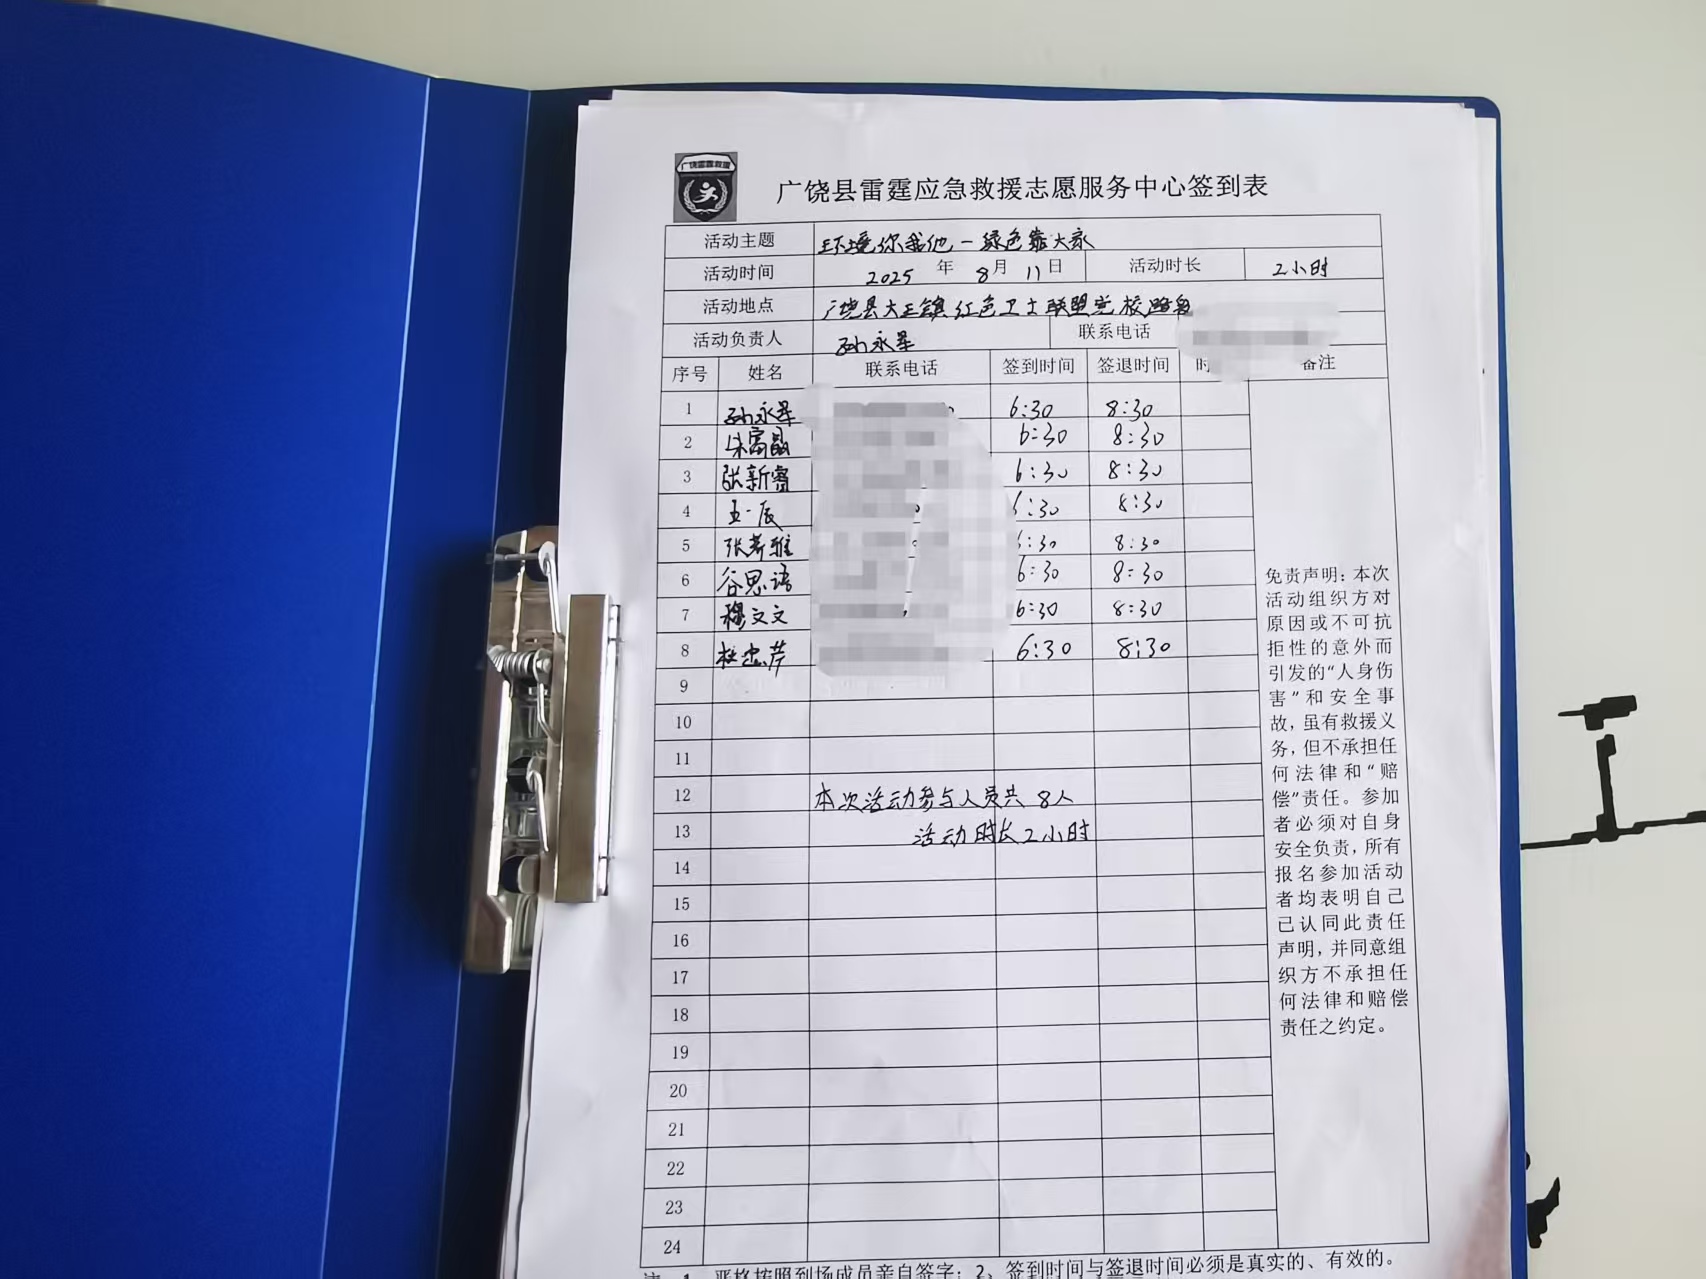 广饶雷霆救援
广饶县雷霆应急救援志愿服务中心签到表
活动主题 环境你我他一绿色靠大家
活动时间 2025 年 8 月 11 日 活动时长 2小时
活动地点 广饶县大王镇红色卫士联盟党校路
活动负责人 孙永军 联系电话
序号 姓名 联系电话 签到时间 签退时间 时 备注
1 孙永军 6:30 8:30
2 朱富晶 6:30 8:30
3 张新睿 6:30 8:30
4 一辰 6:30 8:30
5 张 雅 6:30 8:30
6 谷思语 6:30 8:30
7 穆文文 6:30 8:30
8 杜忠芹 6:30 8:30
9
10
11
12 本次活动参与人员共 8人
13 活动时长2小时
14
15
16
17
18
19
20
21
22
23
24
免责声明：本次
活动组织方对
原因或不可抗
拒性的意外而
引发的“人身伤
害”和安全事
故，虽有救援义
务，但不承担任
何法律和“赔
偿”责任。参加
者必须对自身
安全负责，所有
报名参加活动
者均表明自己
已认同此责任
声明，并同意组
织方不承担任
何法律和赔偿
责任之约定。
注：1、严格按照到场成员亲自签字；2、签到时间与签退时间必须是真实的、有效的。